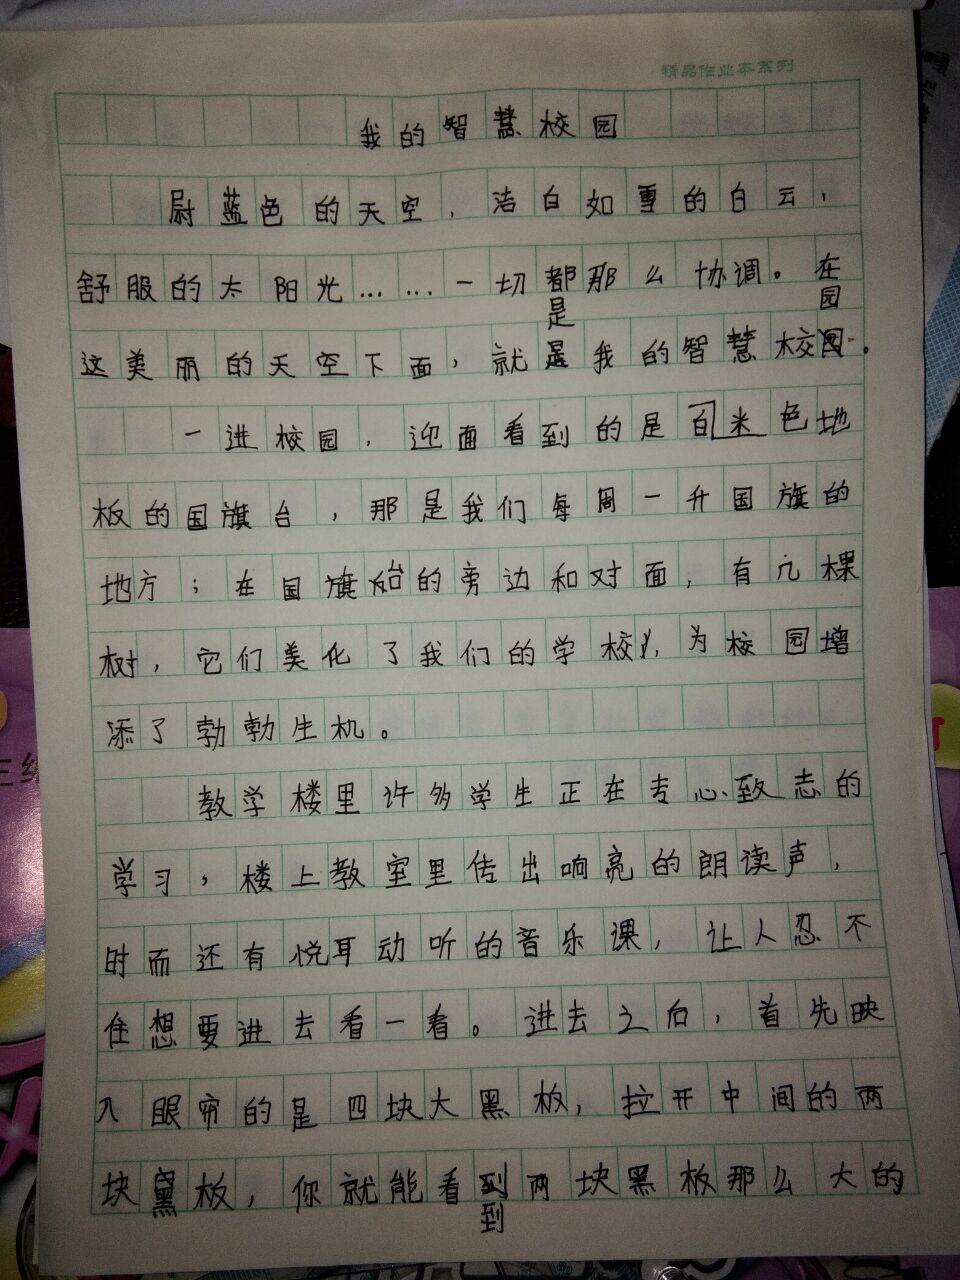 精品作业本系列
我的智慧校园
尉蓝色的天空，洁白如雪的白云，
舒服的太阳光……一切都那么协调。在
这美丽的天空下面，就是我的智慧校园。
一进校园，迎面看到的是白米色地
板的国旗台，那是我们每周一升国旗的
地方；在国旗台的旁边和对面，有几棵
树，它们美化了我们的学校，为校园增
添了勃勃生机。
教学楼里许多学生正在专心致志的
学习，楼上教室里传出响亮的朗读声，
时而还有悦耳动听的音乐课，让人忍不
住想要进去看一看。进去之后，首先映
入眼帘的是四块大黑板，拉开中间的两
块黑板，你就能看到两块黑板那么大的